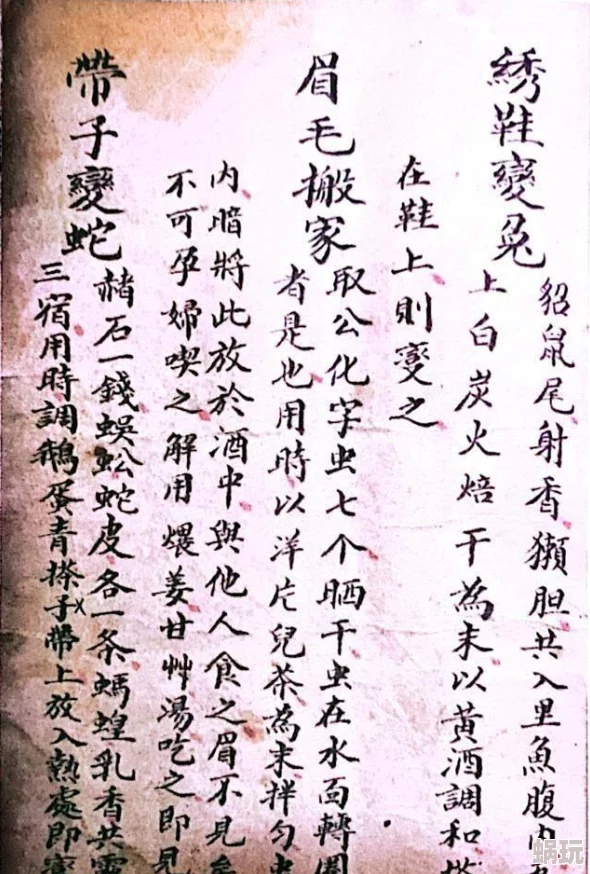 綉鞋變兔
貂鼠尾射香獺胆共入里魚腹内
上白炭火焙干為末以黄酒調和搽
在鞋上則變之
眉毛搬家
取公化字虫七个晒干虫在水面轉圈
者是也用時以洋片兒茶為末拌匀虫
内暗將此放於酒中與他人食之眉不見矣
不可孕婦喫之解用煨姜甘艸湯吃之即見
帶子變蛇
赭石一錢蜈蚣蛇皮各一条螞蝗乳香共露
三宿用時調鵝蛋青搽子帶上放入熱處即變
蝸玩